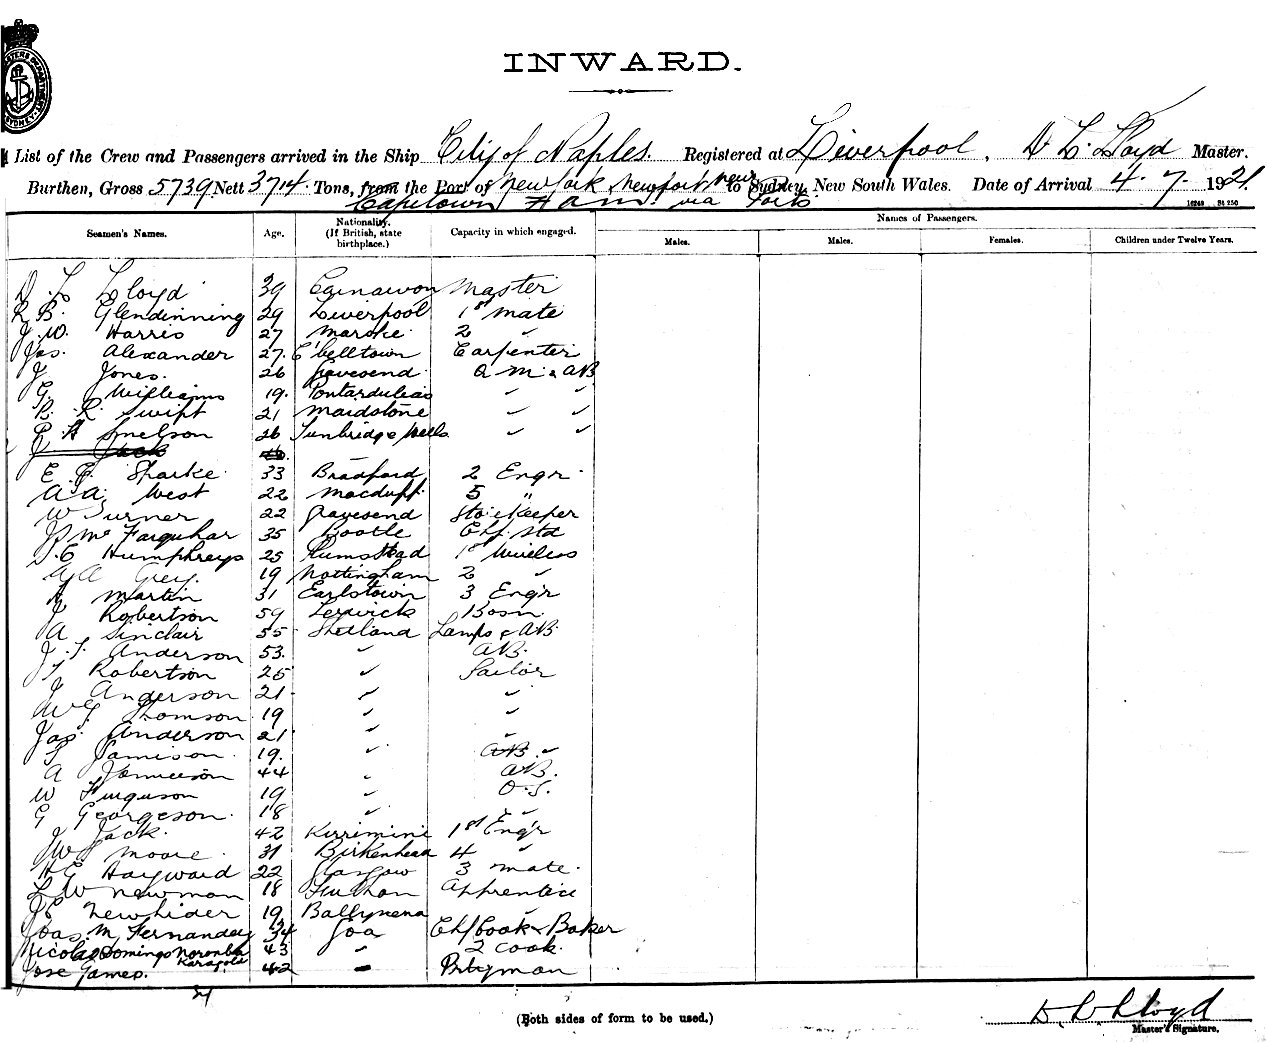 INWARD.
List of the Crew and Passengers arrived in the Ship City of Naples. Registered at Liverpool, D L Lloyd Master.
Burthen, Gross 5739 Nett 3714 Tons, from the Port of New York, Newport News to Sydney, New South Wales. Date of Arrival 4. 7. 1921
Capetown via Ports
16249 St 250
Seamen's Names. Age. Nationality. (If British, state birthplace.) Capacity in which engaged. Names of Passengers.
Males. Males. Females. Children under Twelve Years.
D L Lloyd 39 Master
R B. Glendinning 29 Liverpool 1st mate
J. W. Harris 27 Marske 2 "
Jas. Alexander 27. C'belltown Carpenter
J Jones. 26 Gravesend Q M & AB
G. Williams 19. " "
R. R. Swift 21 Maidstone " "
P H Smelson 26 Tunbridge Wells " "
J Jack
E. G. Sharke 33 Bradford 2 Engr
A A. West 22 Macduff 5 "
W Turner 22 Gravesend Storekeeper
Mc Farquhar 35 Bootle Chf Std
J. C Humphreys 25 Plumstead 1st Wireless
A A Grey. 19 Nottingham 2 "
A Martin 31 Earlstown 3 Engr
J Robertson 59 Lerwick Bosn.
A Sinclair 55 Shetland Lamps & AB
J. T. Anderson 53. " AB.
T Robertson 25 " Sailor
J Anderson 21 " "
W G Thomson 19 " "
Jas. Anderson 21 " "
Jamison 19. " AB "
A Jamieson 44 " AB.
W Ferguson 19 " O.S.
G Georgeson 18 " "
J Jack. 42 1st Engr
J W Moore 31 Birkenhead 4 "
H G Hayward 22 Glasgow 3 mate
L W Newman 18 Apprentice
19 Ballymena "
Joas. M. Fernandez 34 Goa Chf Cook & Baker
Nicolas Domingo Noronha 43 " 2 Cook
Jose Games. 42 " Ptryman
(Both sides of form to be used.)
D L Lloyd
Master's Signature.